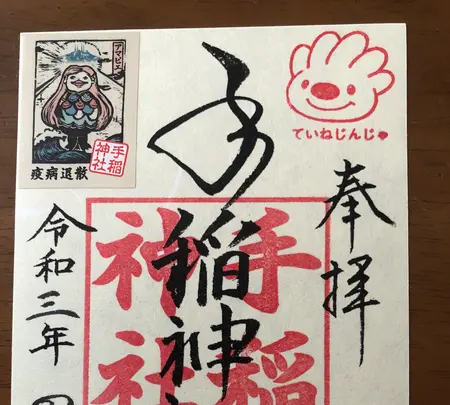 ていねじんじゃ
奉拝
手稲神
手稲
神社
アマビエ
疫病退散
手稲
神社
令和三年